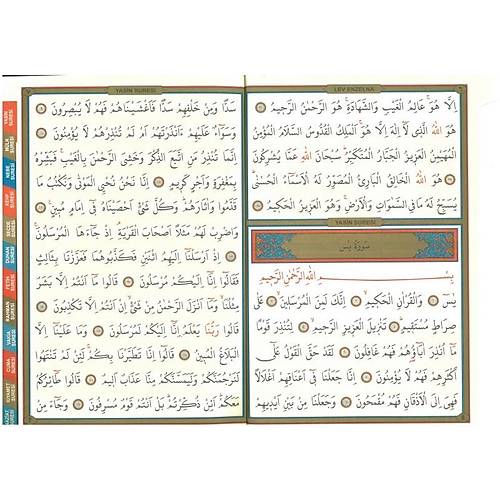 LEV ENZELNA
اِلَّا هُوَ عَالِمُ الْغَيْبِ وَالشَّهَادَةِ هُوَ الرَّحْمٰنُ الرَّحِيمُ
هُوَ اللّٰهُ الَّذِي لَا اِلٰهَ اِلَّا هُوَ اَلْمَلِكُ الْقُدُّوسُ السَّلَامُ الْمُؤْمِنُ
الْمُهَيْمِنُ الْعَزِيزُ الْجَبَّارُ الْمُتَكَبِّرُ سُبْحَانَ اللّٰهِ عَمَّا يُشْرِكُونَ
هُوَ اللّٰهُ الْخَالِقُ الْبَارِئُ الْمُصَوِّرُ لَهُ الْاَسْمَاءُ الْحُسْنٰى
يُسَبِّحُ لَهُ مَا فِي السَّمٰوَاتِ وَالْاَرْضِ وَهُوَ الْعَزِيزُ الْحَكِيمُ
YASİN SURESİ
سُورَةُ يٰسٓ
بِسْمِ اللّٰهِ الرَّحْمٰنِ الرَّحِيمِ
يٰسٓ وَالْقُرْاٰنِ الْحَكِيمِ اِنَّكَ لَمِنَ الْمُرْسَلِينَ عَلٰى
صِرَاطٍ مُسْتَقِيمٍ تَنْزِيلَ الْعَزِيزِ الرَّحِيمِ لِتُنْذِرَ قَوْمًا
مَا اُنْذِرَ اٰبَاؤُهُمْ فَهُمْ غَافِلُونَ لَقَدْ حَقَّ الْقَوْلُ عَلٰى
اَكْثَرِهِمْ فَهُمْ لَا يُؤْمِنُونَ اِنَّا جَعَلْنَا فِي اَعْنَاقِهِمْ اَغْلَالًا
فَهِيَ اِلَى الْاَذْقَانِ فَهُمْ مُقْمَحُونَ وَجَعَلْنَا مِنْ بَيْنِ اَيْدِيهِمْ
YASİN SURESİ
سَدًّا وَمِنْ خَلْفِهِمْ سَدًّا فَاَغْشَيْنَاهُمْ فَهُمْ لَا يُبْصِرُونَ
وَسَوَاءٌ عَلَيْهِمْ ءَاَنْذَرْتَهُمْ اَمْ لَمْ تُنْذِرْهُمْ لَا يُؤْمِنُونَ
اِنَّمَا تُنْذِرُ مَنِ اتَّبَعَ الذِّكْرَ وَخَشِيَ الرَّحْمٰنَ بِالْغَيْبِ فَبَشِّرْهُ
بِمَغْفِرَةٍ وَاَجْرٍ كَرِيمٍ اِنَّا نَحْنُ نُحْيِ الْمَوْتٰى وَنَكْتُبُ مَا
قَدَّمُوا وَاٰثَارَهُمْ وَكُلَّ شَيْءٍ اَحْصَيْنَاهُ فِي اِمَامٍ مُبِينٍ
وَاضْرِبْ لَهُمْ مَثَلًا اَصْحَابَ الْقَرْيَةِ اِذْ جَاءَهَا الْمُرْسَلُونَ
اِذْ اَرْسَلْنَا اِلَيْهِمُ اثْنَيْنِ فَكَذَّبُوهُمَا فَعَزَّزْنَا بِثَالِثٍ
فَقَالُوا اِنَّا اِلَيْكُمْ مُرْسَلُونَ قَالُوا مَا اَنْتُمْ اِلَّا بَشَرٌ
مِثْلُنَا وَمَا اَنْزَلَ الرَّحْمٰنُ مِنْ شَيْءٍ اِنْ اَنْتُمْ اِلَّا تَكْذِبُونَ
قَالُوا رَبُّنَا يَعْلَمُ اِنَّا اِلَيْكُمْ لَمُرْسَلُونَ وَمَا عَلَيْنَا اِلَّا
الْبَلَاغُ الْمُبِينُ قَالُوا اِنَّا تَطَيَّرْنَا بِكُمْ لَئِنْ لَمْ تَنْتَهُوا
لَنَرْجُمَنَّكُمْ وَلَيَمَسَّنَّكُمْ مِنَّا عَذَابٌ اَلِيمٌ قَالُوا طَائِرُكُمْ
مَعَكُمْ اَئِنْ ذُكِّرْتُمْ بَلْ اَنْتُمْ قَوْمٌ مُسْرِفُونَ وَجَاءَ مِنْ
YASİN SURESİ
MÜLK SURESİ
SURESİ
KEHF SURESİ
SECDE SURESİ
DUHAN SURESİ
FETİH SURESİ
RAHMAN SURESİ
VAKIA SURESİ
CUMA SURESİ
KIYAMET SURESİ